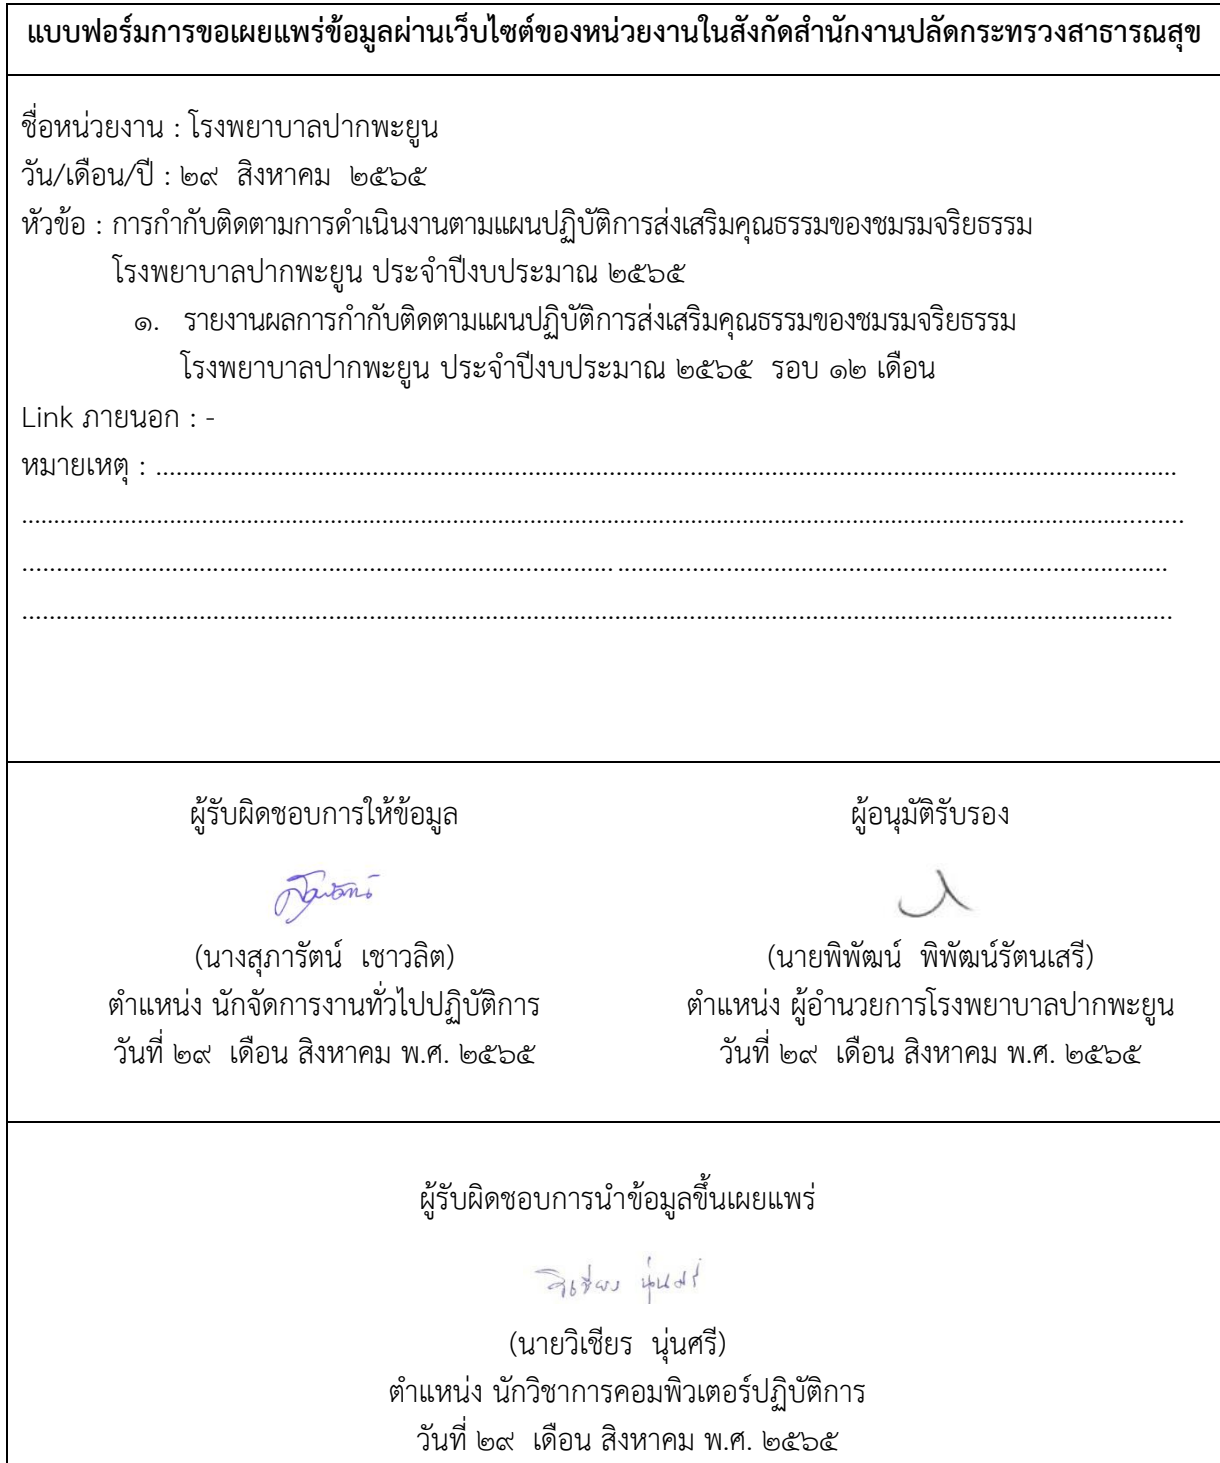 แบบฟอร์มการขอเผยแพร่ข้อมูลผ่านเว็บไซต์ของหน่วยงานในสังกัดสำนักงานปลัดกระทรวงสาธารณสุข
ชื่อหน่วยงาน : โรงพยาบาลปากพะยูน
วัน/เดือน/ปี : ๒๙ สิงหาคม ๒๕๖๕
หัวข้อ : การกำกับติดตามการดำเนินงานตามแผนปฏิบัติการส่งเสริมคุณธรรมของชมรมจริยธรรม
โรงพยาบาลปากพะยูน ประจำปีงบประมาณ ๒๕๖๕
๑. รายงานผลการกำกับติดตามแผนปฏิบัติการส่งเสริมคุณธรรมของชมรมจริยธรรม
โรงพยาบาลปากพะยูน ประจำปีงบประมาณ ๒๕๖๕ รอบ ๑๒ เดือน
Link ภายนอก : -
หมายเหตุ : ........................................................................................................................................................
ผู้รับผิดชอบการให้ข้อมูล
สุภารัตน์
(นางสุภารัตน์ เชาวลิต)
ตำแหน่ง นักจัดการงานทั่วไปปฏิบัติการ
วันที่ ๒๙ เดือน สิงหาคม พ.ศ. ๒๕๖๕
ผู้อนุมัติรับรอง
(นายพิพัฒน์ พิพัฒน์รัตนเสรี)
ตำแหน่ง ผู้อำนวยการโรงพยาบาลปากพะยูน
วันที่ ๒๙ เดือน สิงหาคม พ.ศ. ๒๕๖๕
ผู้รับผิดชอบการนำข้อมูลขึ้นเผยแพร่
วิเชียร นุ่นศรี
(นายวิเชียร นุ่นศรี)
ตำแหน่ง นักวิชาการคอมพิวเตอร์ปฏิบัติการ
วันที่ ๒๙ เดือน สิงหาคม พ.ศ. ๒๕๖๕